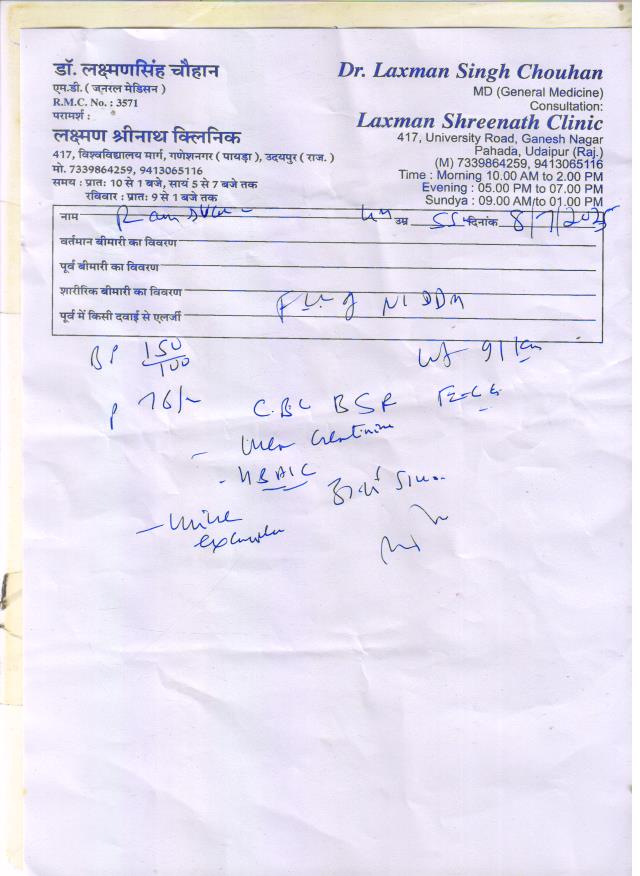 डॉ. लक्ष्मणसिंह चौहान
एम.डी. ( जनरल मेडिसन )
R.M.C. No. : 3571
परामर्श :
लक्ष्मण श्रीनाथ क्लिनिक
417, विश्वविद्यालय मार्ग, गणेशनगर ( पायड़ा ), उदयपुर ( राज. )
मो. 7339864259, 9413065116
समय : प्रातः 10 से 1 बजे, सायं 5 से 7 बजे तक
रविवार : प्रातः 9 से 1 बजे तक
Dr. Laxman Singh Chouhan
MD (General Medicine)
Consultation:
Laxman Shreenath Clinic
417, University Road, Ganesh Nagar
Pahada, Udaipur (Raj.)
(M) 7339864259, 9413065116
Time : Morning 10.00 AM to 2.00 PM
Evening : 05.00 PM to 07.00 PM
Sundya : 09.00 AM to 01.00 PM
नाम उम्र दिनांक 8/7/2025
वर्तमान बीमारी का विवरण
पूर्व बीमारी का विवरण
शारीरिक बीमारी का विवरण
NIDDM
पूर्व में किसी दवाई से एलर्जी
BP 150/100 Wt 91 Kg
P 76/-
CBC BSR
Creatinine
- HBAIC
- Urine